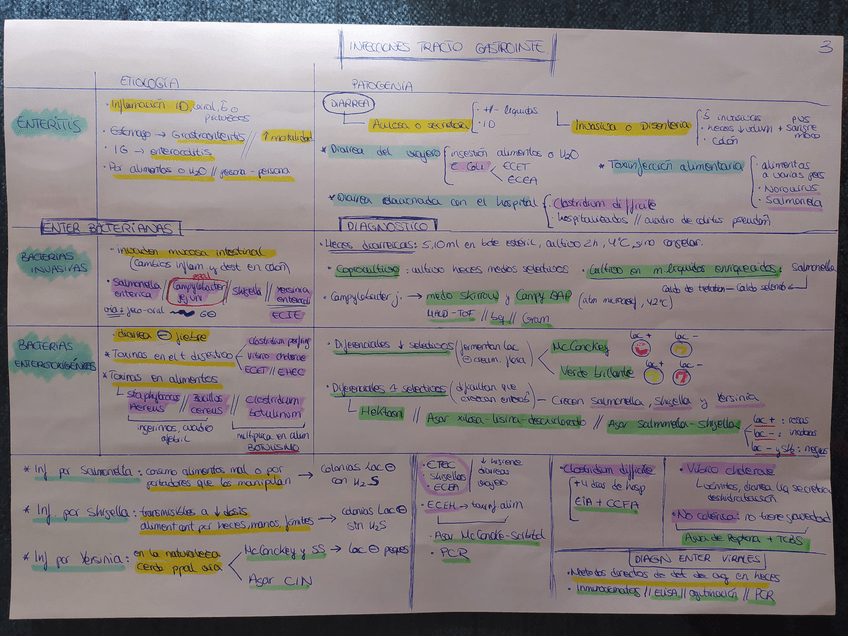 INFECCIONES TRACTO GASTROINTE
3
ETIOLOGÍA
PATOGENIA
ENTERITIS
· Inflamación ID, oral, ō o
· Estómago → Grastroenteritis // ↑ mortalidad
· IG → enterocolitis
· Por alimentos o H2O // persona - persona
DIARREA
Acuosa o secretora
· +/- líquidas
· ID
Invasiva o Disenteria
· ō invasivas
· heces ↓ volum + sangre
pus
moco
· Colon
* Diarrea del viajero
ingestión alimentos o H2O
E Coli
ECET
ECEA
* Toxiinfección alimentaria
· alimentos
a varias pers
· Norovirus
· Salmonella
* Diarrea relacionada con el hospital
· Clostridium difficile
· hospitalizados // cuadro de colitis pseudom
ENTER BACTERIANAS
DIAGNOSTICO
BACTERIAS
INVASIVAS
· invaden mucosa intestinal
(cambios inflam y dest en colon)
· Salmonella
enterica // Campylobacter
jejuni // Shigella // Yersinia
enterocol
vía: feco-oral
ECIE
· Heces diarreicas: 5,10ml en bote esteril, cultivo 2h, 4°C, sino congelar.
· Coprocultivo: cultivo heces medios selectivos
· Cultivo en m líquidos enriquecidos: Salmonella
Caldo selenito
· Campylobacter j. → medio Skirrow y Campy BAP (atm microaerof, 42°C)
MALD-TOF // bq // Gram
BACTERIAS
ENTEROTOXIGÉNICAS
· diarrea ⊖ fiebre
* Toxinas en el t digestivo
clostridium perfring
vibrio cholerae
ECET // EHEC
* Toxinas en alimentos
Staphylococus
Aereus // Bacillus
cereus // Clostridium
botulinum
ingerimos, cuadro
multiplica en alim
BOTULISMO
· Diferenciales ↓ selectivos (fermentan lac
⊖ crecim. flora)
McConckey
Verde brillante
lac +
lac -
· Diferenciales ↑ selectivos (dificultan que
crezcan enterob) — Crecen Salmonella, Shigella y Yersinia
Hektoen // Agar xilosa-lisina-desoxicolado // Agar Salmonella-Shigella
lac + : rosas
lac - : incoloras
lac - y SH2 : negras
* Inf por Salmonella: consumo alimentos mal o por
portadores que los manipulan → colonias Lac ⊖
con H2S
* Inf por Shigella: transmisibles a ↓ dosis
alimentant por heces, manos, fomites → colonias Lac ⊖
sin H2S
* Inf por Yersinia: en la naturaleza
cerdo ppal
McConckey y SS → lac ⊖ peques
Agar CIN
· ETEC
· Shigellas
· ECEA
↓ higiene
diarrea
viajero
· ECEH → toxiinf alim
· Agar McConckie-Sorbitol
· PCR
· Clostridium difficile
+4 días de hosp
EIA + CCFA
· Vibrio cholerae
vómitos, diarrea líq secretora
deshidratación
· No colérica: no tiene gravedad
Agua de Peptona + TCBS
DIAGN ENTER VIRALES
· Métodos directos de det de ag en heces
· Inmunocromatos // ELISA // aglutinación // PCR